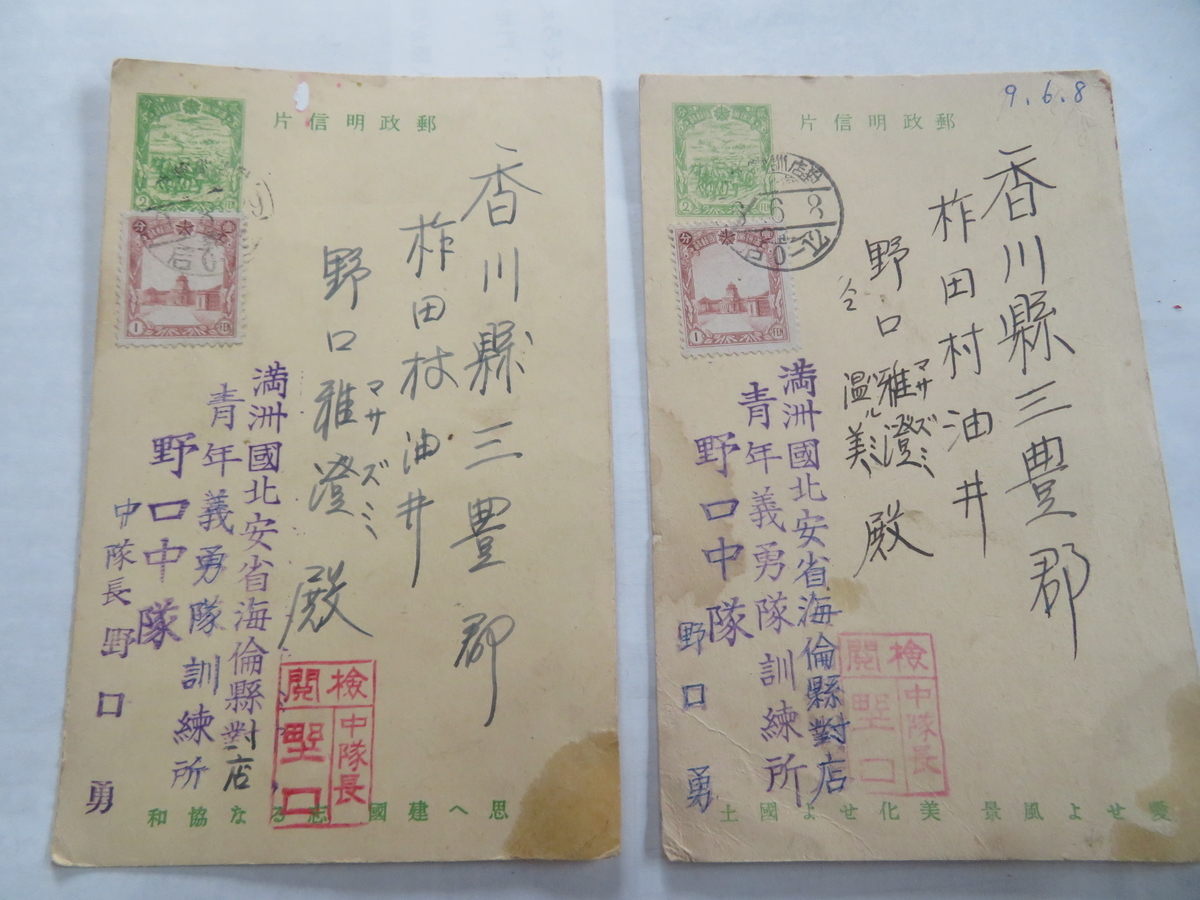 郵政明信片
香川縣三豊郡
柞田村油井
野口雅澄殿
マサズミ
満洲國北安省海倫縣對店
青年義勇隊訓練所
野口中隊
中隊長野口勇
檢閲
中隊長
野口
思へ建國志るなな協和
郵政明信片
9.6.8
香川縣三豊郡
柞田村油井
野口雅澄殿
マサズミ
温美
ハルミ
満洲國北安省海倫縣對店
青年義勇隊訓練所
野口中隊
野口勇
檢閲
中隊長
野口
愛せよ風景美化せよ國土